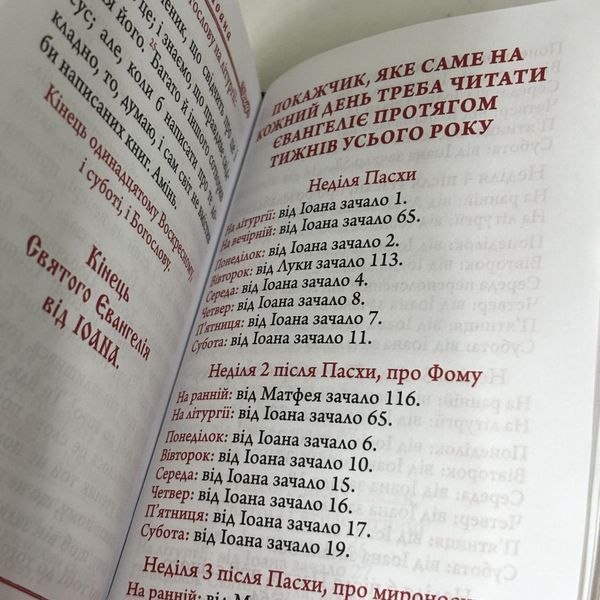 Іоана
Богослову на літургії.
ченик, що свідчить про це, і
це; і знаємо, що правдиве свід-
я його. 25 Багато й іншого сотворив
сус; але, коли б написати про те до-
кладно, то, думаю, і сам світ не вмістив
би написаних книг. Амінь.
Кінець одинадцятому Воскресному,
і суботі, і Богослову.
Кінець
Святого Євангелія
від ІОАНА.
ПОКАЖЧИК, ЯКЕ САМЕ НА
КОЖНИЙ ДЕНЬ ТРЕБА ЧИТАТИ
ЄВАНГЕЛІЄ ПРОТЯГОМ
ТИЖНІВ УСЬОГО РОКУ
Неділя Пасхи
На літургії: від Іоана зачало 1.
На вечірній: від Іоана зачало 65.
Понеділок: від Іоана зачало 2.
Вівторок: від Луки зачало 113.
Середа: від Іоана зачало 4.
Четвер: від Іоана зачало 8.
П'ятниця: від Іоана зачало 7.
Субота: від Іоана зачало 11.
Неділя 2 після Пасхи, про Фому
На ранній: від Матфея зачало 116.
На літургії: від Іоана зачало 65.
Понеділок: від Іоана зачало 6.
Вівторок: від Іоана зачало 10.
Середа: від Іоана зачало 15.
Четвер: від Іоана зачало 16.
П'ятниця: від Іоана зачало 17.
Субота: від Іоана зачало 19.
Неділя 3 після Пасхи, про мироносиць
На ранній: від Марка